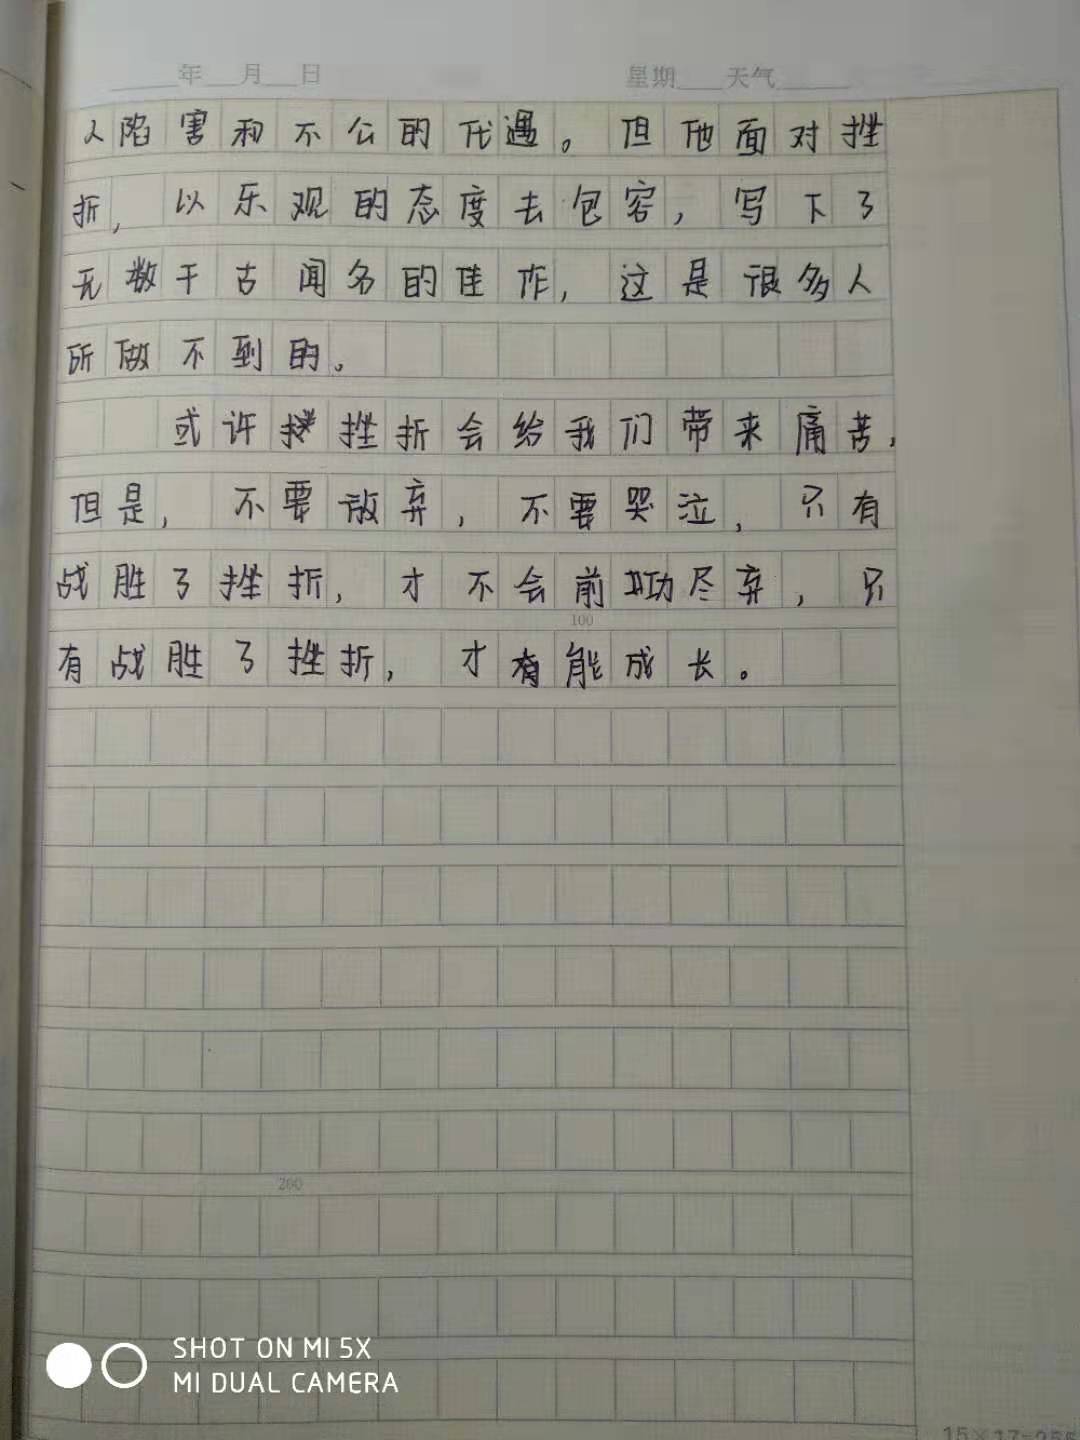 年 月 日 星期 天气
人陷害和不公的代遇。但他面对挫
折，以乐观的态度去包容，写下了
无数千古闻名的佳作，这是很多人
所做不到的。
或许挫折会给我们带来痛苦，
但是，不要放弃，不要哭泣，只有
战胜了挫折，才不会前功尽弃，只
100
有战胜了挫折，才有能成长。
200
SHOT ON MI 5X
MI DUAL CAMERA